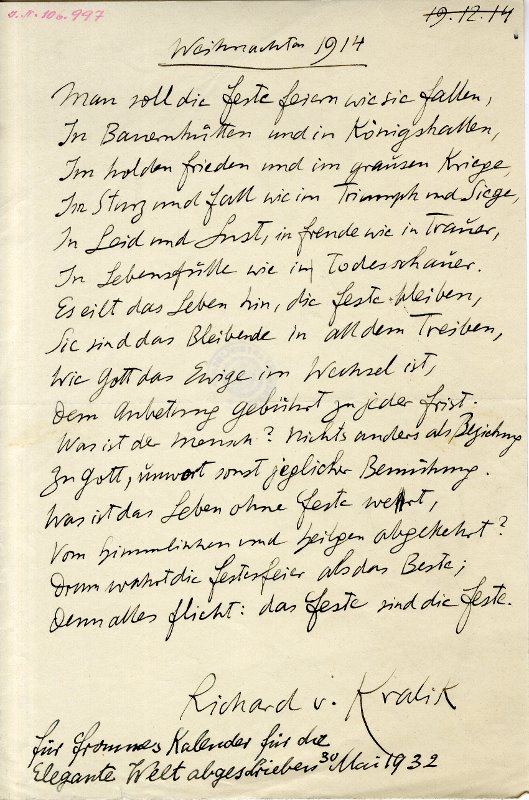 J. N. 106.997
19.12.14
Weihnachten 1914
Man soll die Feste feiern wie sie fallen,
In Bauernhütten und in Königshallen,
Im holden Frieden und im grausen Kriege,
In Sturz und Fall wie im Triumph und Siege,
In Leid und Lust, in Freude wie in Trauer,
In Lebensfülle wie im Todesschauer.
Es eilt das Leben hin, die Feste bleiben,
Sie sind das Bleibende in all dem Treiben,
Wie Gott das Ewige im Wechsel ist,
Dem Anbetung gebührt zu jeder Frist.
Was ist der Mensch? Nichts anders als Beziehung
Zu Gott, unwert sonst jeglicher Bemühung.
Was ist das Leben ohne Feste wert,
Vom Himmlischen und Heilgen abgekehrt?
Drum wahrt die Festesfeier als das Beste;
Denn alles flieht: das Feste sind die Feste.
Richard v. Kralik
für Frommes Kalender für die
Elegante Welt abgeschrieben 30 Mai 1932